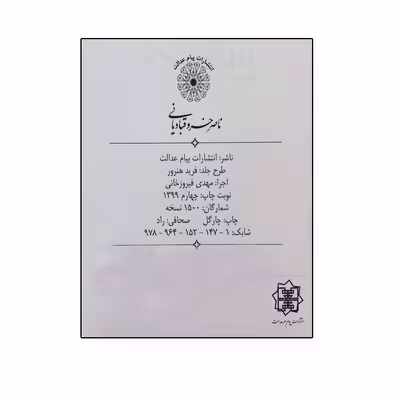 انتشارات پیام عدالت
ناصرخسرو قبادیانی
ناشر: انتشارات پیام عدالت
طرح جلد: فرید هنرور
اجرا: مهدی فیروزخانی
نوبت چاپ: چهارم ۱۳۹۹
شمارگان: ۱۵۰۰ نسخه
چاپ: چارگل صحافی: راد
شابک: ۱ - ۱۴۷ - ۱۵۲ - ۹۶۴ - ۹۷۸
انتشارات پیام عدالت